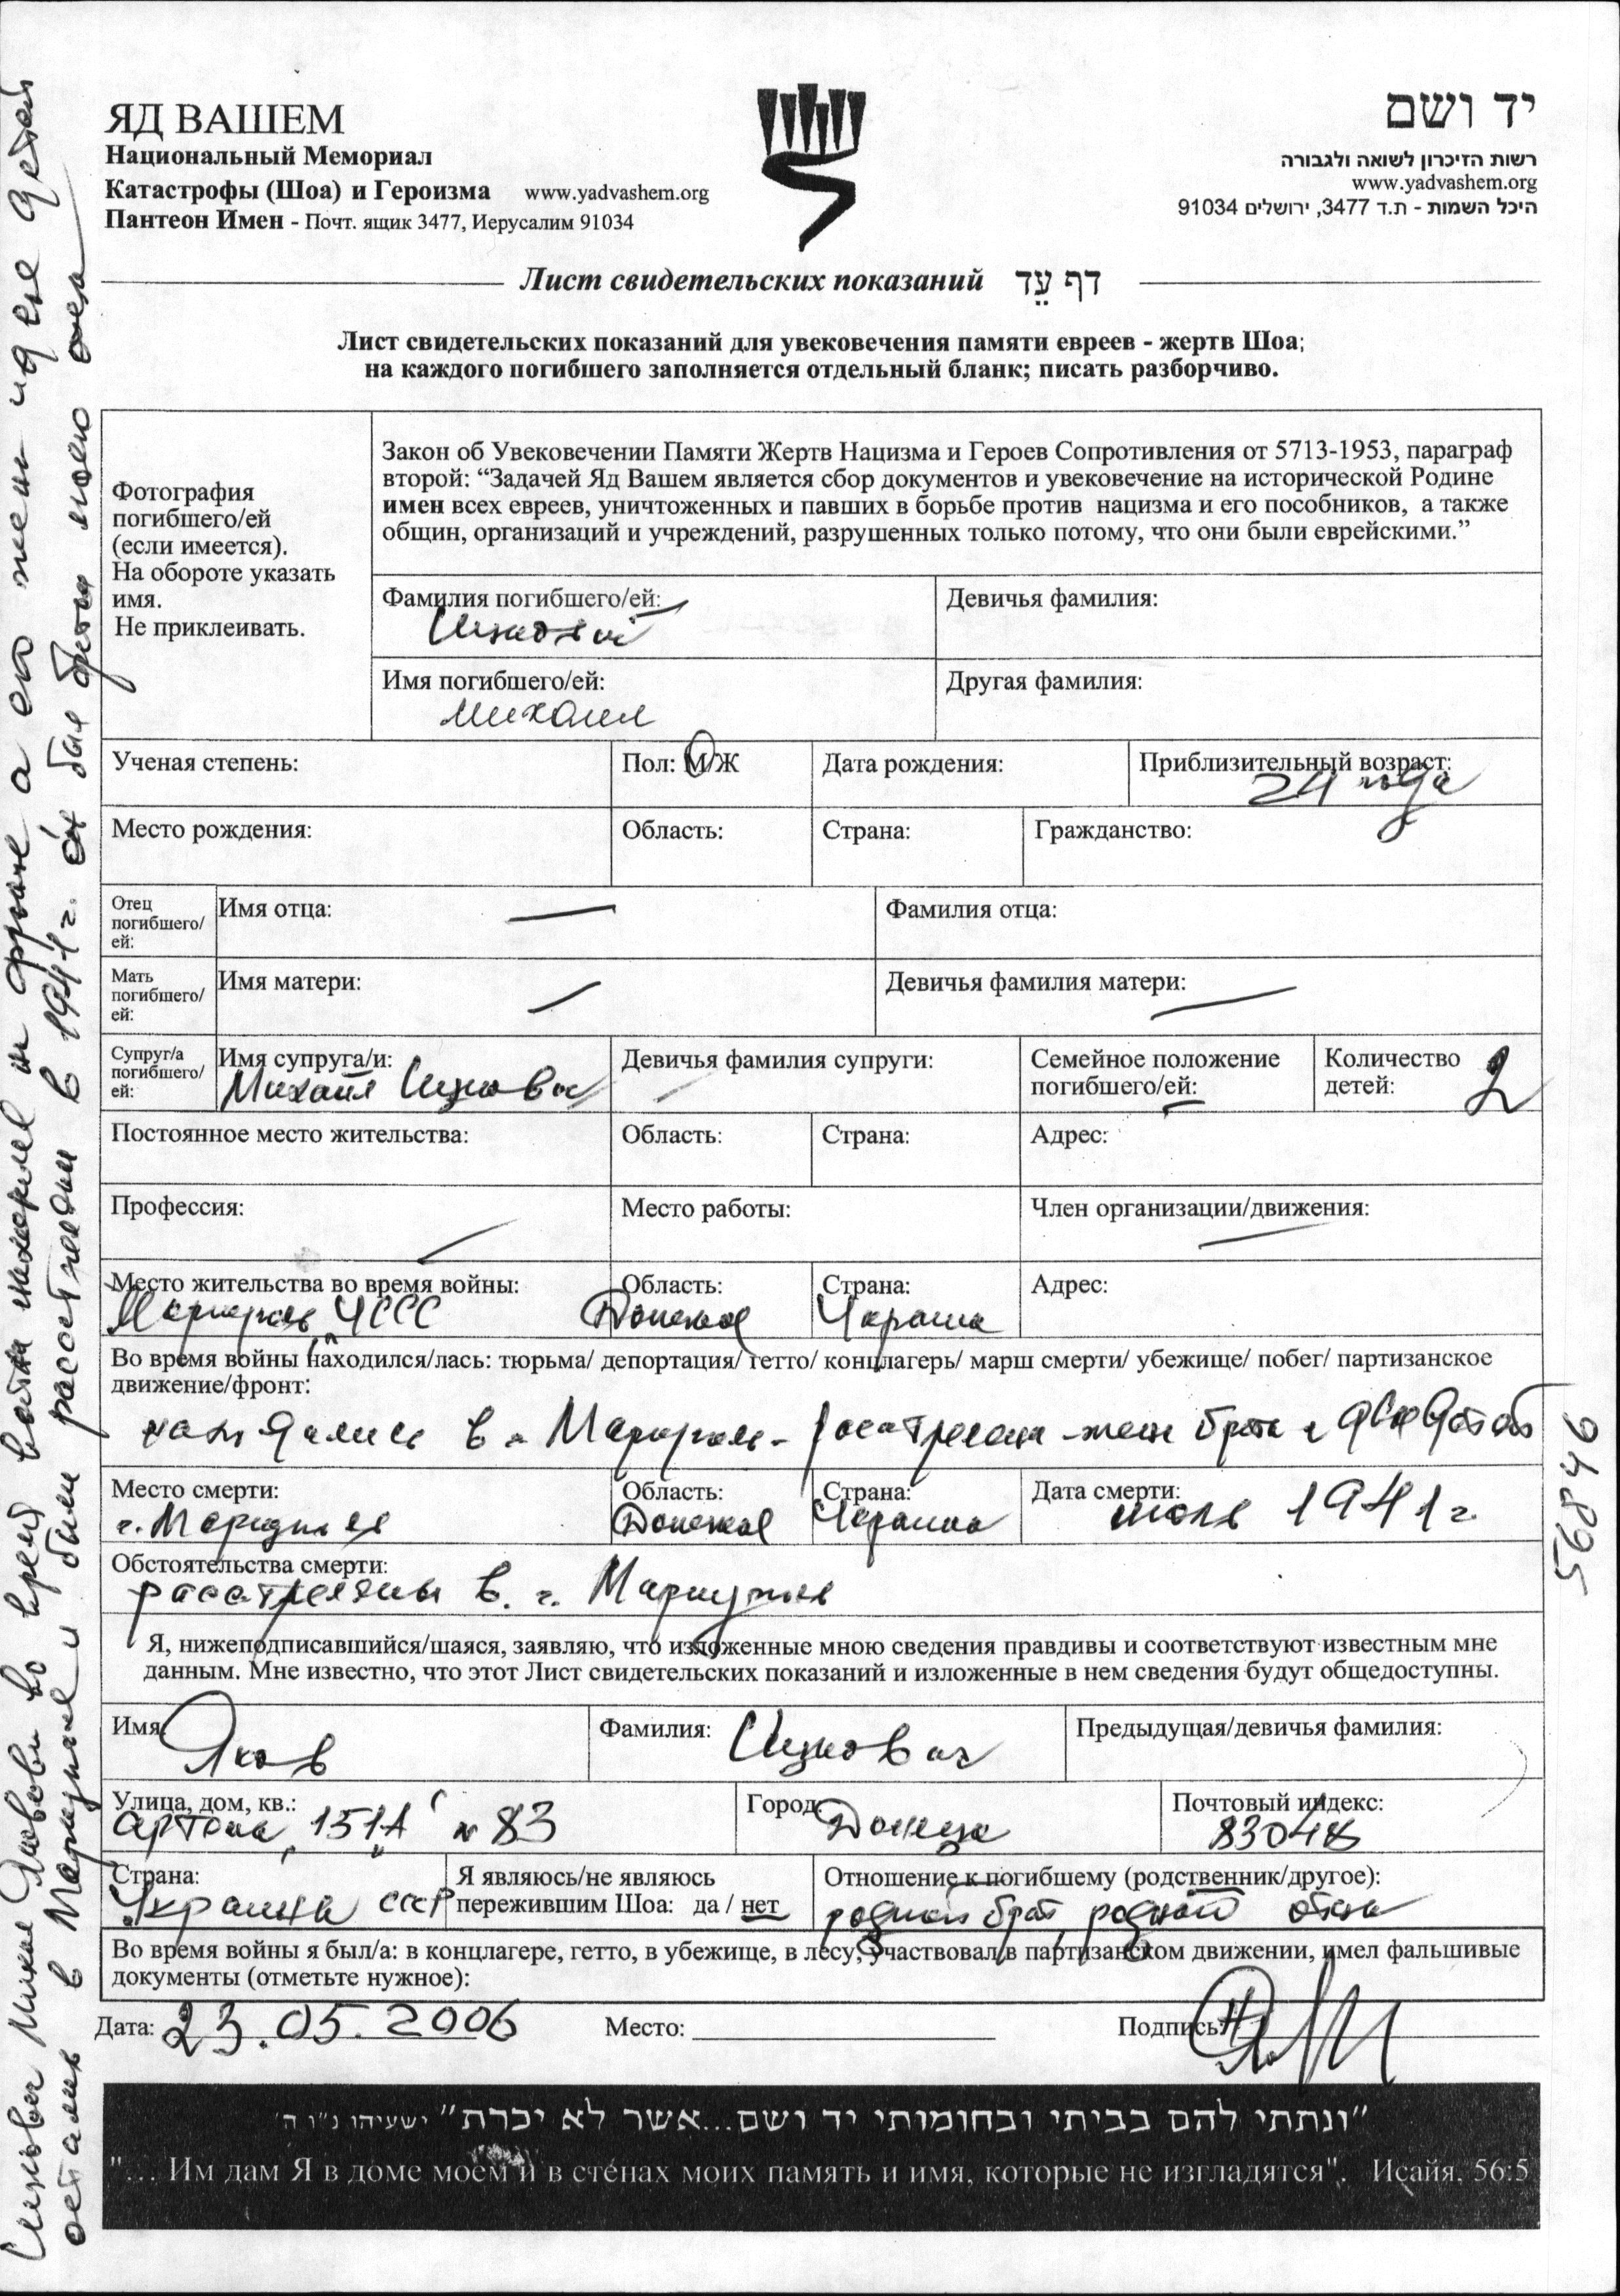 ЯД ВАШЕМ
Национальный Мемориал
Катастрофы (Шоа) и Героизма www.yadvashem.org
Пантеон Имен - Почт. ящик 3477, Иерусалим 91034
יד ושם
רשות הזיכרון לשואה ולגבורה
www.yadvashem.org
היכל השמות - ת.ד 3477, ירושלים 91034
Лист свидетельских показаний דף עֵד
Лист свидетельских показаний для увековечения памяти евреев - жертв Шоа;
на каждого погибшего заполняется отдельный бланк; писать разборчиво.
Фотография
погибшего/ей
(если имеется).
На обороте указать
имя.
Не приклеивать.
Закон об Увековечении Памяти Жертв Нацизма и Героев Сопротивления от 5713-1953, параграф
второй: “Задачей Яд Вашем является сбор документов и увековечение на исторической Родине
имен всех евреев, уничтоженных и павших в борьбе против нацизма и его пособников, а также
общин, организаций и учреждений, разрушенных только потому, что они были еврейскими.”
Фамилия погибшего/ей: Девичья фамилия:
Имя погибшего/ей: Другая фамилия:
Михаил
Ученая степень: Пол: М/Ж Дата рождения: Приблизительный возраст:
24 года
Место рождения: Область: Страна: Гражданство:
Отец
погибшего/
ей:
Имя отца: Фамилия отца:
Мать
погибшего/
ей:
Имя матери: Девичья фамилия матери:
Супруг/а
погибшего/
ей:
Имя супруга/и: Девичья фамилия супруги: Семейное положение
погибшего/ей:
Количество
детей: 2
Михаил Ицкович
Постоянное место жительства: Область: Страна: Адрес:
Профессия: Место работы: Член организации/движения:
Место жительства во время войны: Область: Страна: Адрес:
Мариуполь, УССР Донецкая Украина
Во время войны находился/лась: тюрьма/ депортация/ гетто/ концлагерь/ марш смерти/ убежище/ побег/ партизанское
движение/фронт:
находились в г. Мариуполе - расстреляны - жена брата и двое детей
Место смерти: Область: Страна: Дата смерти:
г. Мариуполь Донецкая Украина июль 1941 г.
Обстоятельства смерти:
расстреляны в. г. Мариуполе
Я, нижеподписавшийся/шаяся, заявляю, что изложенные мною сведения правдивы и соответствуют известным мне
данным. Мне известно, что этот Лист свидетельских показаний и изложенные в нем сведения будут общедоступны.
Имя: Яков Фамилия: Ицкович Предыдущая/девичья фамилия:
Улица, дом, кв.: Город: Почтовый индекс:
Артема 151А 83 Донецк 83048
Страна: Я являюсь/не являюсь Отношение к погибшему (родственник/другое):
Украина СССР пережившим Шоа: да / нет родной брат родной отца
Во время войны я был/а: в концлагере, гетто, в убежище, в лесу, участвовал в партизанском движении, имел фальшивые
документы (отметьте нужное):
Дата: 23.05.2006 Место: Подпись:
"ונתתי להם בביתי ובחומותי יד ושם...אשר לא יכרת" ישעיהו נ"ו ה'
"... Им дам Я в доме моем и в стенах моих память и имя, которые не изгладятся". Исайя, 56:5
Ицкович Яковович во время войны на фронте а его жена и двое детей
остались в Мариуполе и были расстреляны в 1941 г. он был брат моего отца
56846